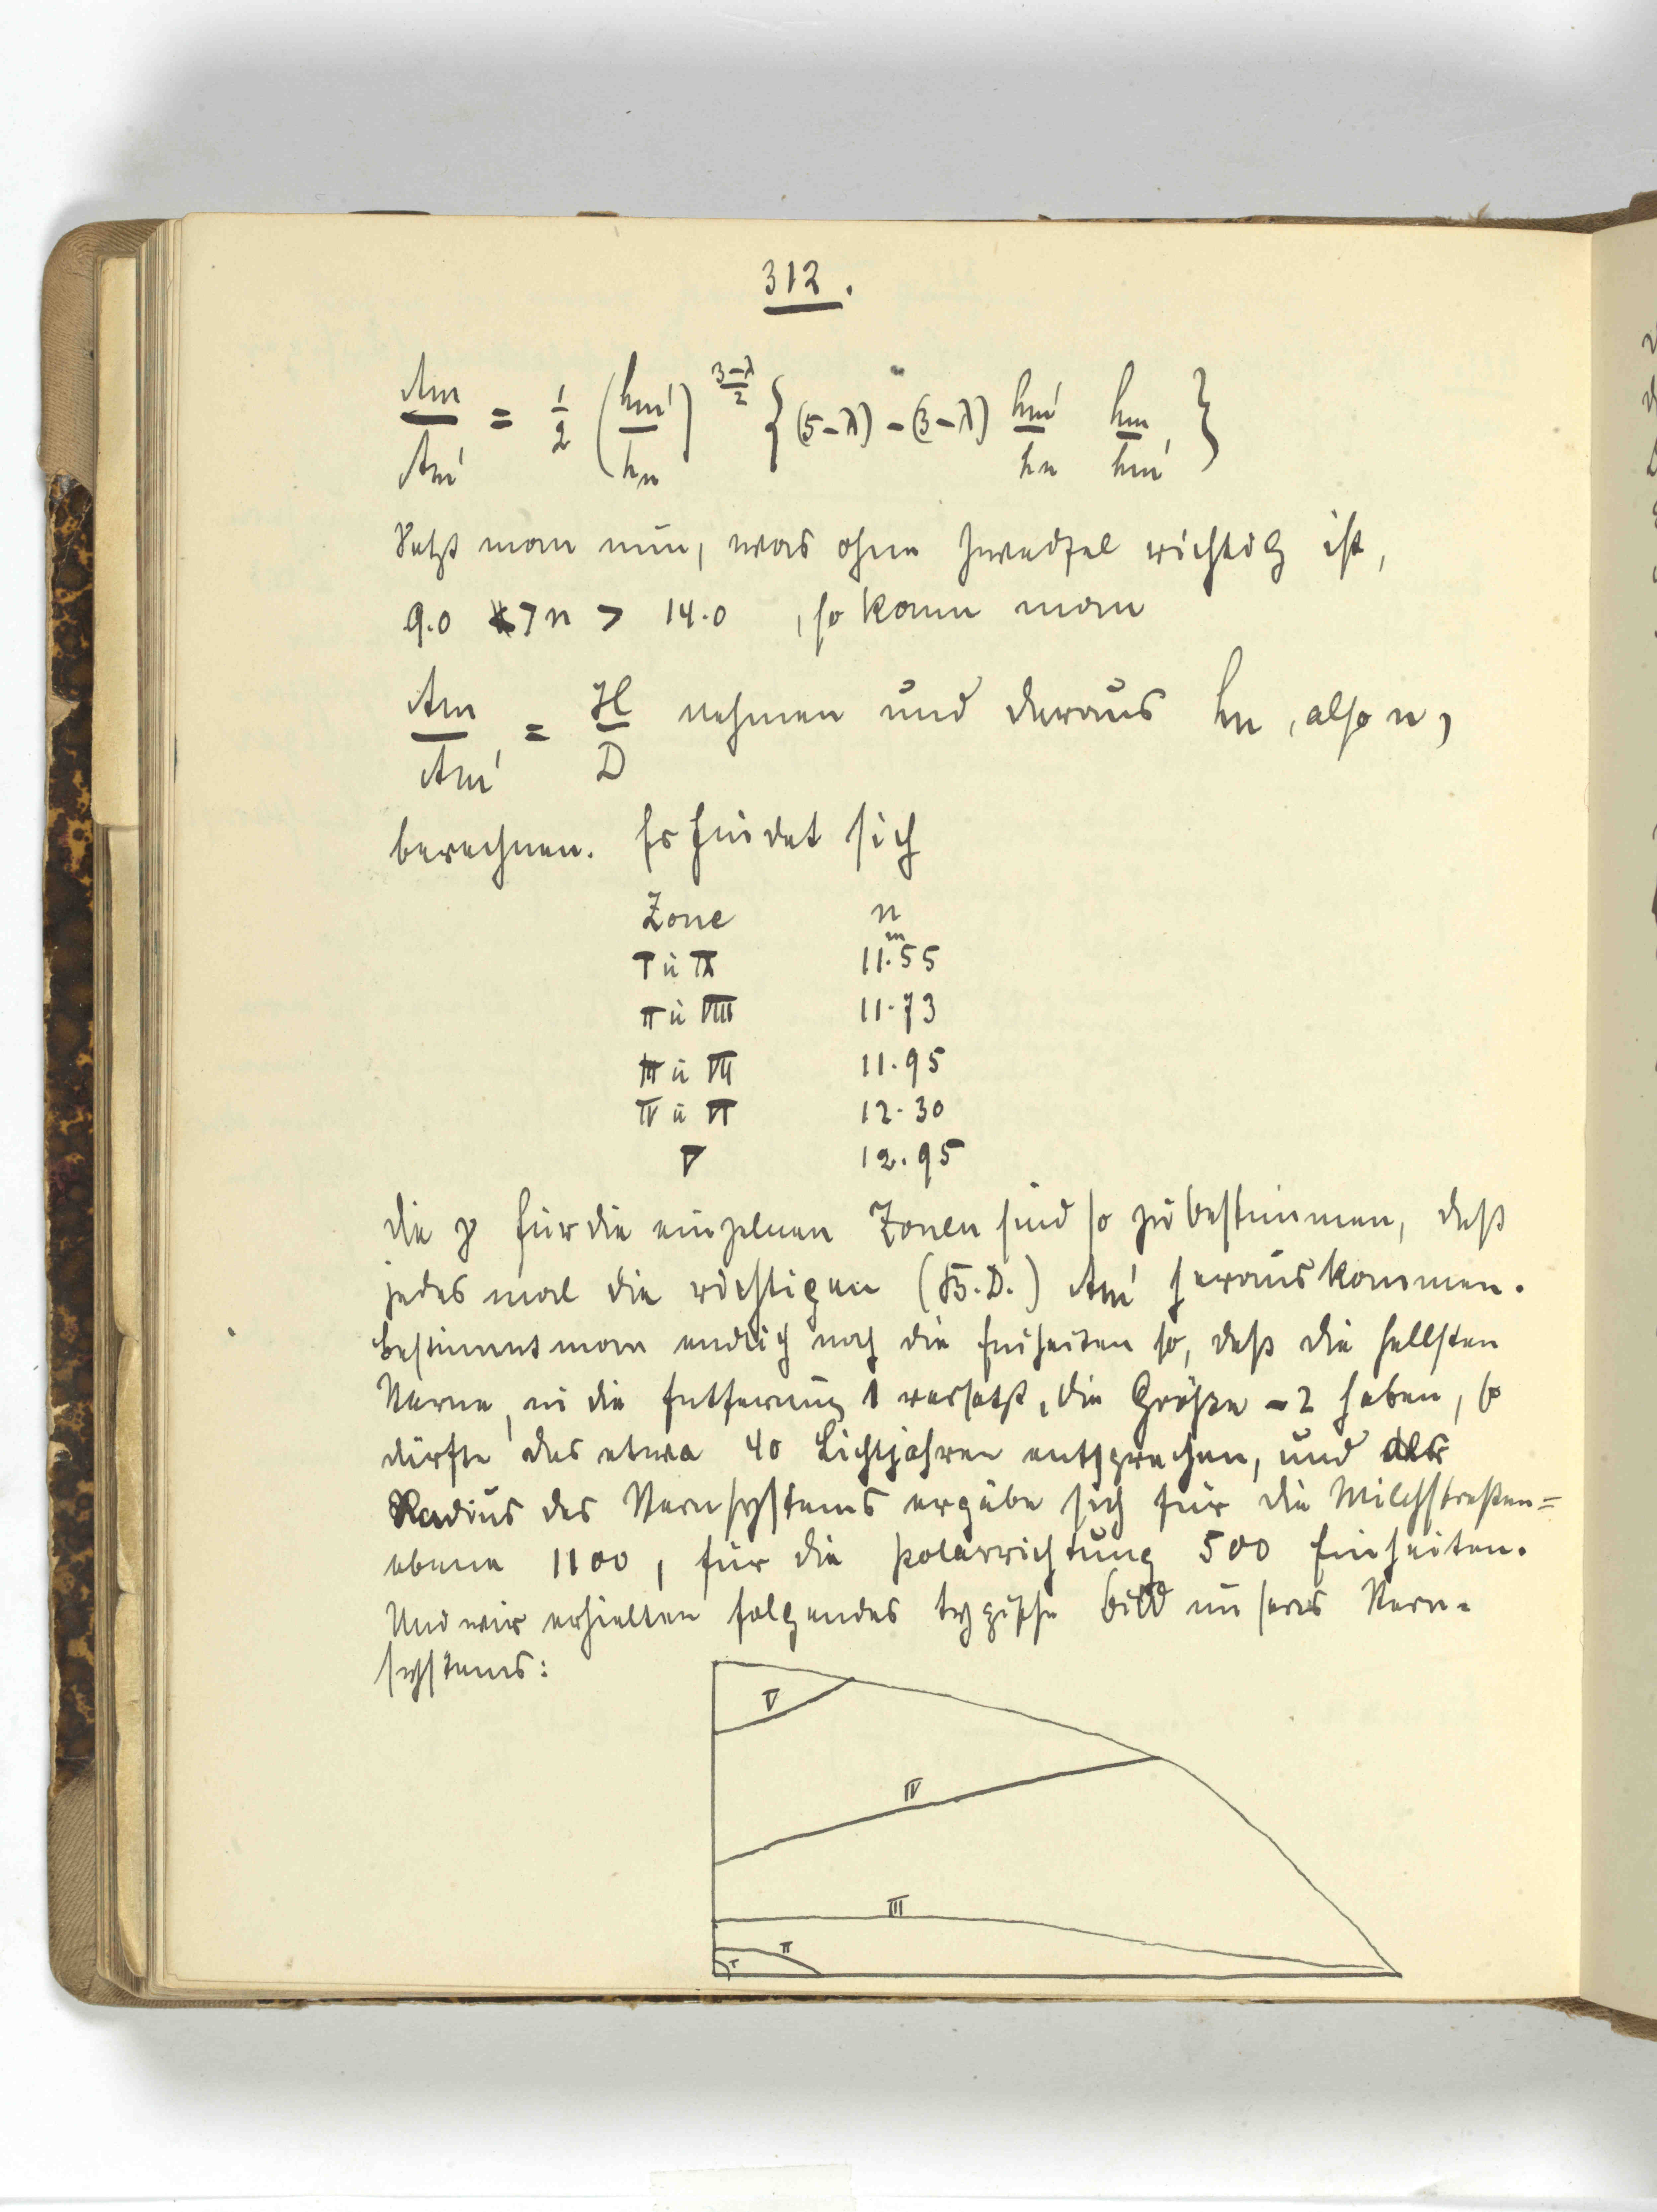 312.
Am/Am' = 1/2 (hm'/hn)^((3-λ)/2) {(5-λ) - (3-λ) hm'/hn hm/hm'}
Setzt man nun, was ohne Zweifel richtig ist,
9.0 > n > 14.0, so kann man
Am/Am' = H/D nehmen und daraus hn, also n,
berechnen. Es findet sich
Zone n
I u IX 11.55 m
II u VIII 11.73
III u VII 11.95
IV u VI 12.30
V 12.95
Die γ für die einzelnen Zonen sind so zu bestimmen, daß
jedes mal die richtigen (B.D.) Am' herauskommen.
Bestimmt man endlich noch die Einheiten so, daß die hellsten
Sterne, in die Entfernung 1 versetzt, die Größe -2 haben, so
dürfte das etwa 40 Lichtjahren entsprechen, und der
Radius des Sternsystems ergäbe sich für die Milchstraßen=
ebene 1100, für die Polarrichtung 500 Einheiten.
Und wir erhielten folgendes typische Bild unseres Stern=
systems:
V
IV
III
II
I